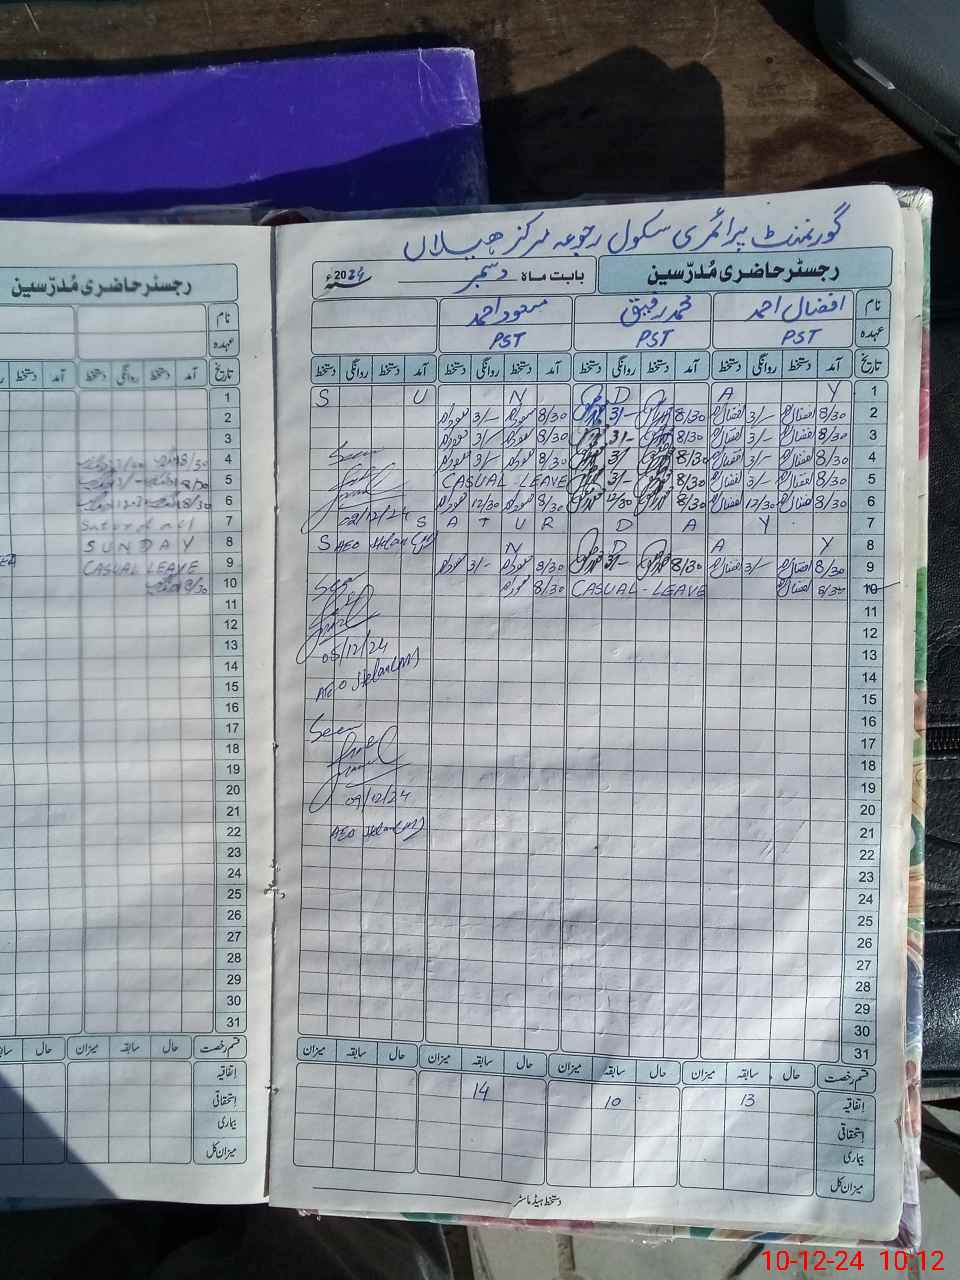 گورنمنٹ پرائمری سکول رجوعہ مرکز ھیلاں
رجسٹر حاضری مُدرّسین
بابت ماہ دسمبر 2024ء
نام افضال احمد محمد رفیق مسعود احمد
عہدہ PST PST PST
تاریخ آمد دستخط روانگی دستخط آمد دستخط روانگی دستخط آمد دستخط روانگی دستخط آمد دستخط روانگی دستخط
1 S U N D A Y
2 8/30 3/- 8/30 3/- 8/30 3/-
3 8/30 3/- 8/30 3/- 8/30 3/-
4 8/30 3/- 8/30 3/- 8/30 3/-
5 8/30 3/- 8/30 3/- CASUAL - LEAVE
6 8/30 12/30 8/30 12/30 8/30 12/30
7 S A T U R D A Y
8 S U N D A Y
9 8/30 3/- 8/30 3/- 8/30 3/-
10 8/30 CASUAL - LEAVE 8/30
11
12
13
14
15
16
17
18
19
20
21
22
23
24
25
26
27
28
29
30
31
Seen
02/12/24
AEO Helan(M)
Seen
05/12/24
AEO Helan(M)
Seen
09/12/24
AEO Helan(M)
قسم رخصت حال سابقہ میزان حال سابقہ میزان حال سابقہ میزان حال سابقہ میزان
اتفاقیہ 13 10 14
استحقاقی
بیماری
میزان کل
دستخط ہیڈ ماسٹر
رجسٹر حاضری مُدرّسین
نام
عہدہ
تاریخ آمد دستخط روانگی دستخط
1
2
3
4 8/30
5 8/30 3/-
6 8/30
7
8 SUNDAY
9 CASUAL LEAVE
10 8/30
11
12
13
14
15
16
17
18
19
20
21
22
23
24
25
26
27
28
29
30
31
قسم رخصت حال سابقہ میزان حال
اتفاقیہ
استحقاقی
بیماری
میزان کل
10-12-24 10:12